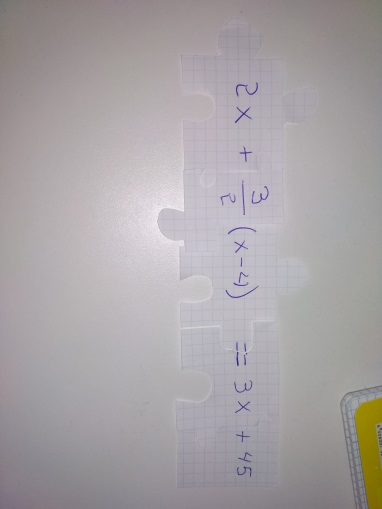 2x + 3/2 (x-4) = 3x + 45